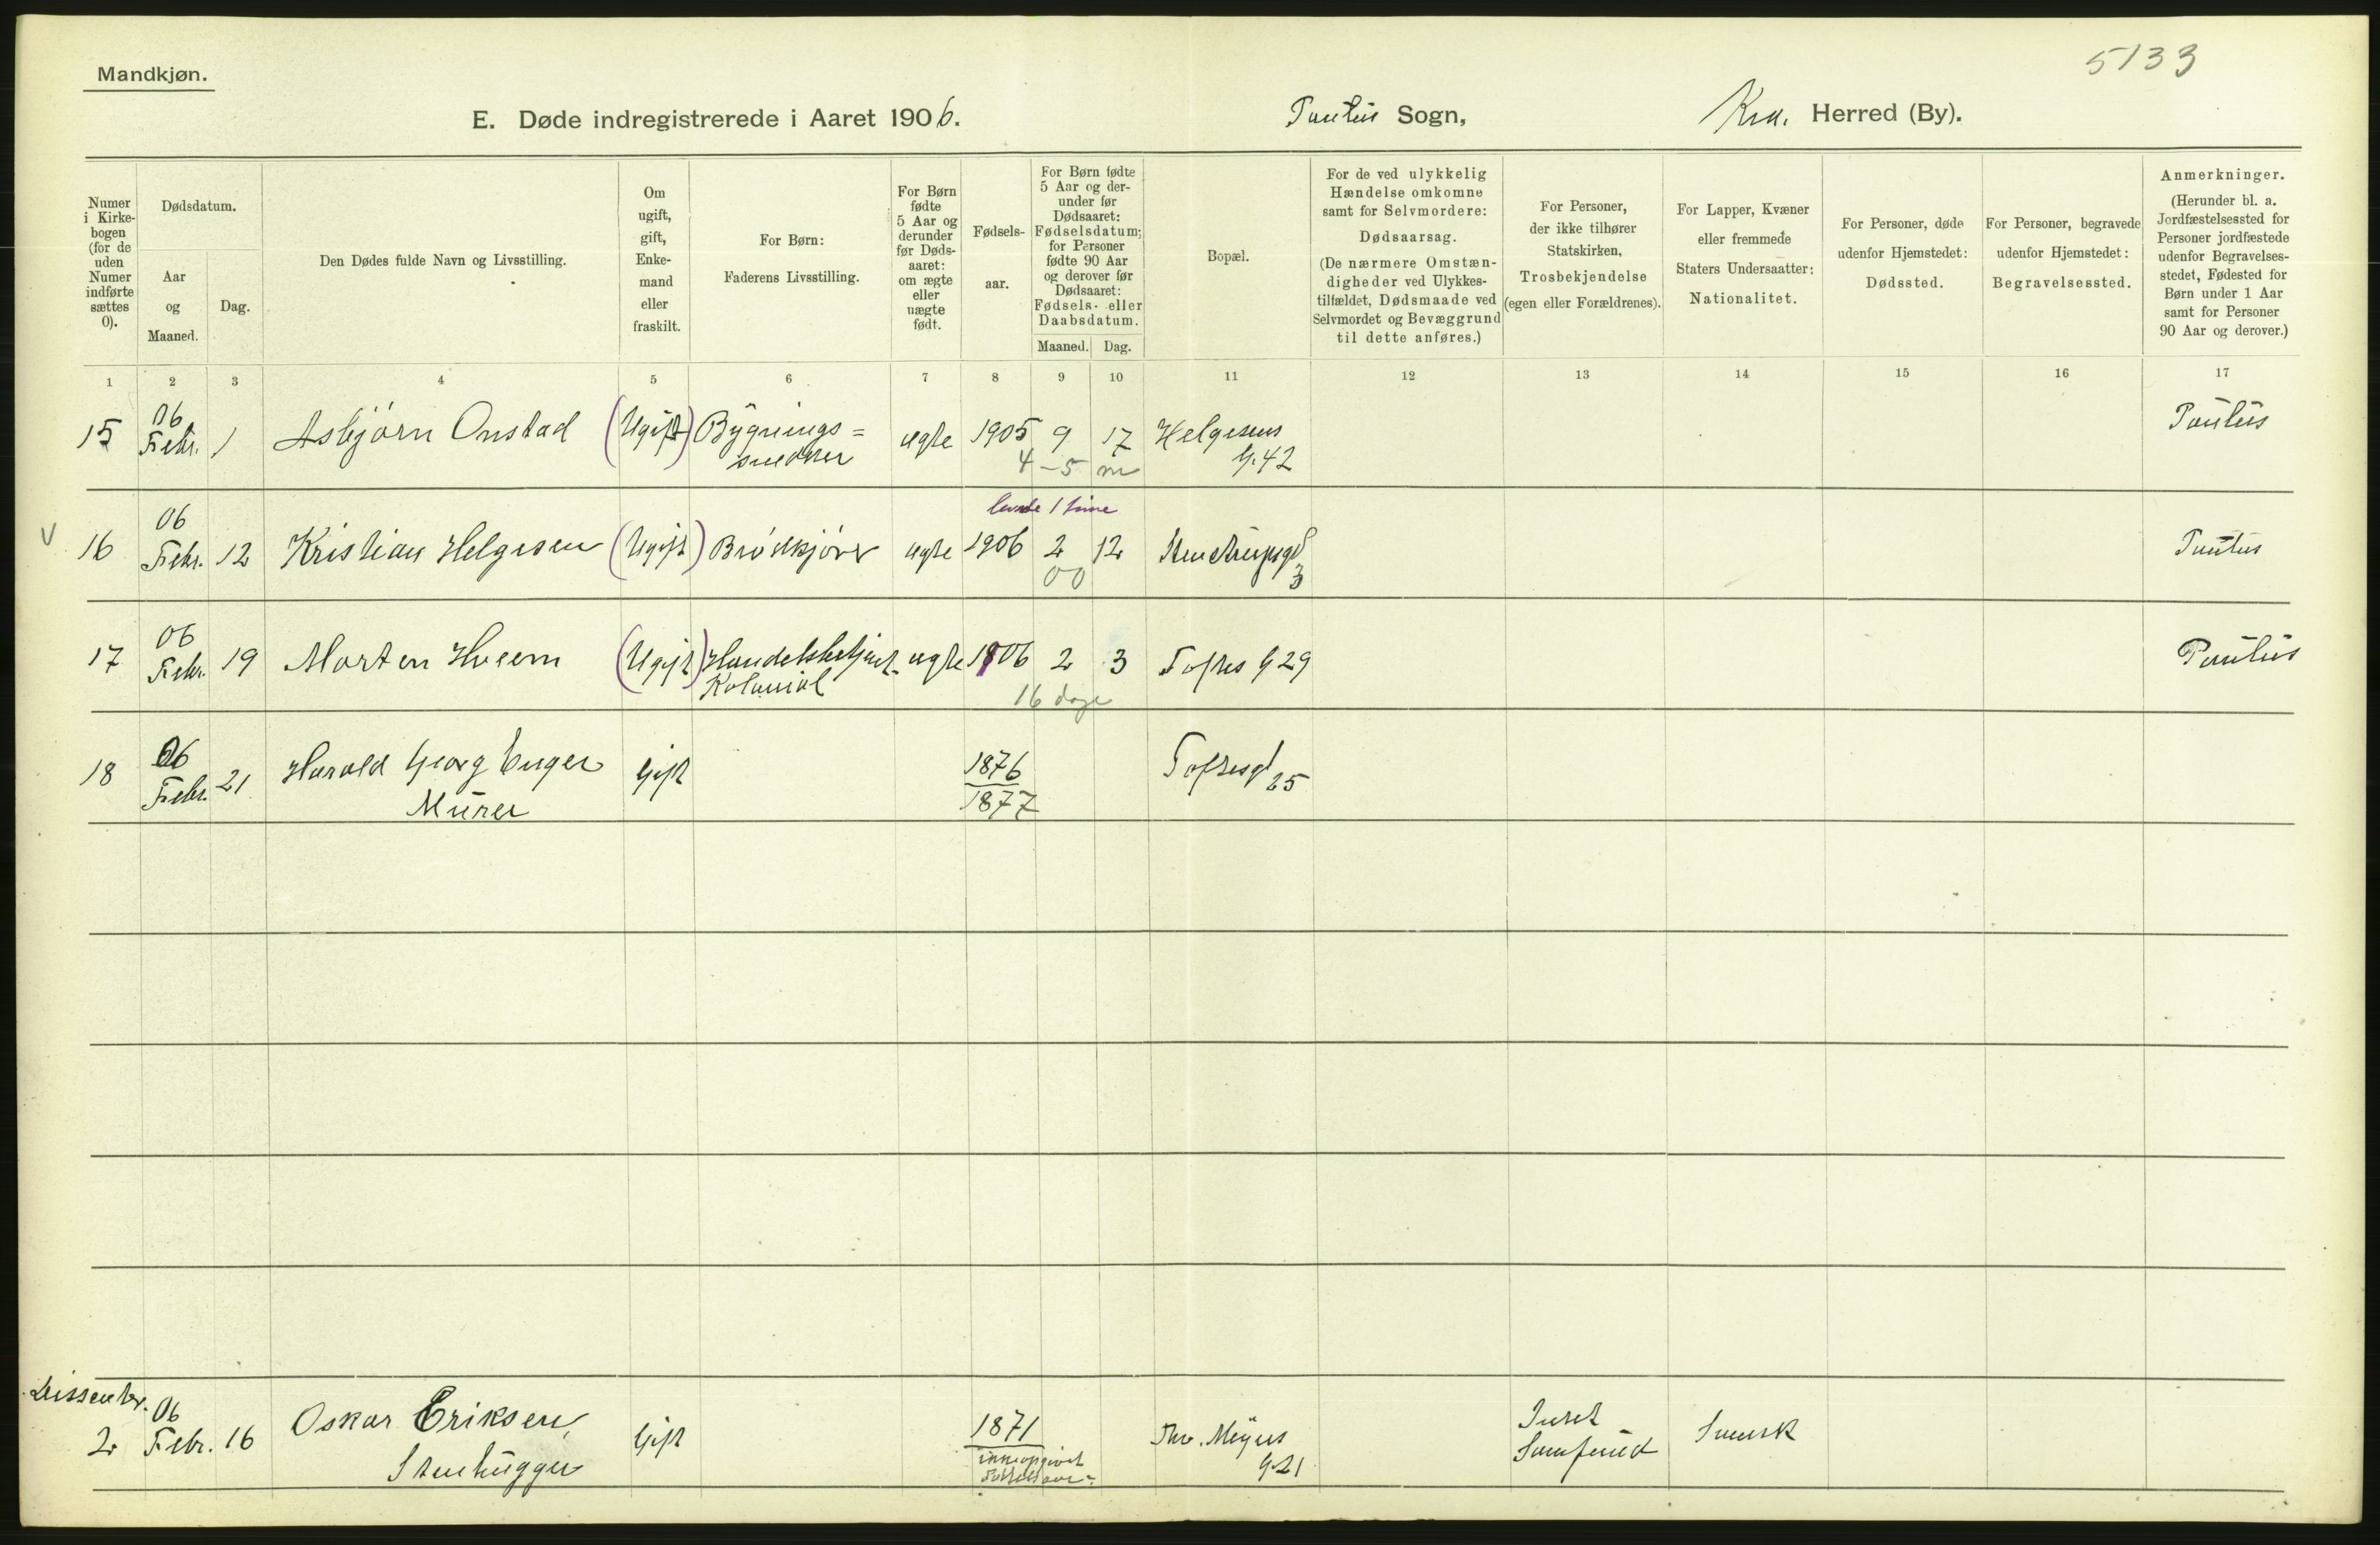 5133
Mandkjøn.
E. Døde indregistrerede i Aaret 1906. Paulus Sogn, Kra. Herred (By).
Numer i Kirke-bogen (for de uden Numer indførte sættes 0).
Dødsdatum.
Aar og Maaned.
Dag.
Den Dødes fulde Navn og Livsstilling.
Om ugift, gift, Enke-mand eller fraskilt.
For Børn: Faderens Livsstilling.
For Børn fødte 5 Aar og derunder før Døds-aaret: om ægte eller uægte født.
Fødsels-aar.
For Børn fødte 5 Aar og der-under før Dødsaaret: Fødselsdatum; for Personer fødte 90 Aar og derover før Dødsaaret: Fødsels- eller Daabsdatum.
Maaned. Dag.
Bopæl.
For de ved ulykkelig Hændelse omkomne samt for Selvmordere: Dødsaarsag. (De nærmere Omstæn-digheder ved Ulykkes-tilfældet, Dødsmaade ved Selvmordet og Bevæggrund til dette anføres.)
For Personer, der ikke tilhører Statskirken, Trosbekjendelse (egen eller Forældrenes).
For Lapper, Kvæner eller fremmede Staters Undersaatter: Nationalitet.
For Personer, døde udenfor Hjemstedet: Dødssted.
For Personer, begravede udenfor Hjemstedet: Begravelsessted.
Anmerkninger. (Herunder bl. a. Jordfæstelsessted for Personer jordfæstede udenfor Begravelses-stedet, Fødested for Børn under 1 Aar samt for Personer 90 Aar og derover.)
1 2 3 4 5 6 7 8 9 10 11 12 13 14 15 16 17
06
15 Febr. 1 Asbjørn Onstad (Ugift) Bygnings= ægte 1905 9 17 Helgesens Paulus
snedker 4-5 m G. 42
06 levede 1 time
v 16 Febr. 12 Kristian Helgesen (Ugift) Brødkjører ægte 1906 2 12 Stenstrupsgd Paulus
00 3
06
17 Febr. 19 Morten Hveem (Ugift) Handelsbetjent ægte 1906 2 3 Toftes G 29 Paulus
Kolonial 16 dage
06
18 Febr. 21 Harald Georg Enger Gift 1876 Toftesgd 25
Murer 1877
Dissenter.
06
2 Febr. 16 Oskar Eriksen, Gift 1871 Thv. Meyers Luth. Svensk
Stenhugger ikke opgivet G. 21 Samfund
Fødselsaar